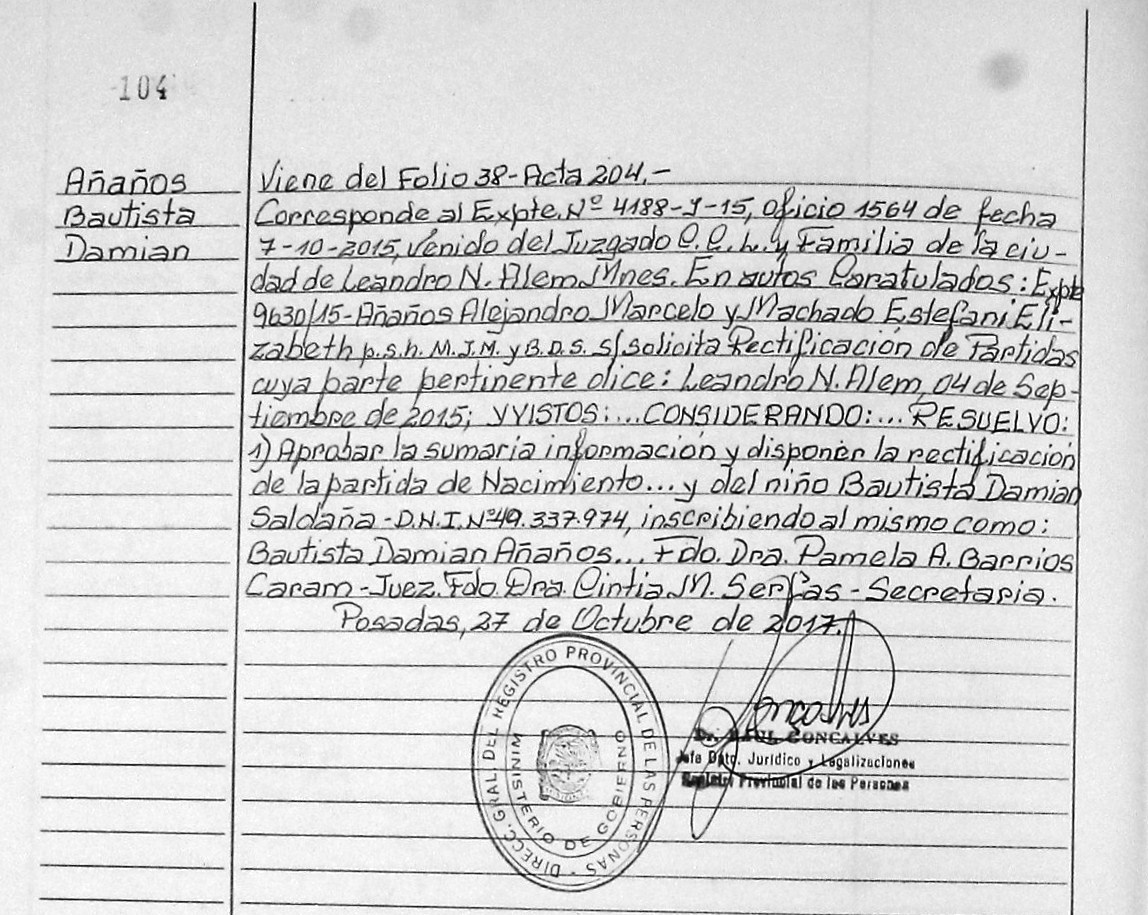 104
Añaños
Bautista
Damian
Viene del Folio 38-Acta 204.-
Corresponde al Expte. Nº 4188-Y-15, Oficio 1564 de fecha
7-10-2015, venido del Juzgado C.C.L. y Familia de la ciu-
dad de Leandro N. Alem Mnes. En autos Caratulados: Expte
9630/15-Añaños Alejandro Marcelo y Machado Estefani Eli-
zabeth p.s.h. M.J.M. y B.D.S. s/solicita Rectificación de Partidas
cuya parte pertinente dice: Leandro N. Alem, 04 de Sep-
tiembre de 2015; Y VISTOS:...CONSIDERANDO:...RESUELVO:
1) Aprobar la sumaria información y disponer la rectificación
de la partida de Nacimiento... y del niño Bautista Damian
Saldaña - D.N.I. Nº 49.337.974, inscribiendo al mismo como:
Bautista Damian Añaños... Fdo. Dra. Pamela A. Barrios
Caram - Juez. Fdo. Dra. Cintia M. Serfas - Secretaria.
Posadas, 27 de Octubre de 2017.
DIRECC. GRAL. DEL REGISTRO PROVINCIAL DE LAS PERSONAS -
MINISTERIO DE GOBIERNO
Dr. RAUL GONCALVES
Jefe Dpto. Jurídico y Legalizaciones
Registro Provincial de las Personas